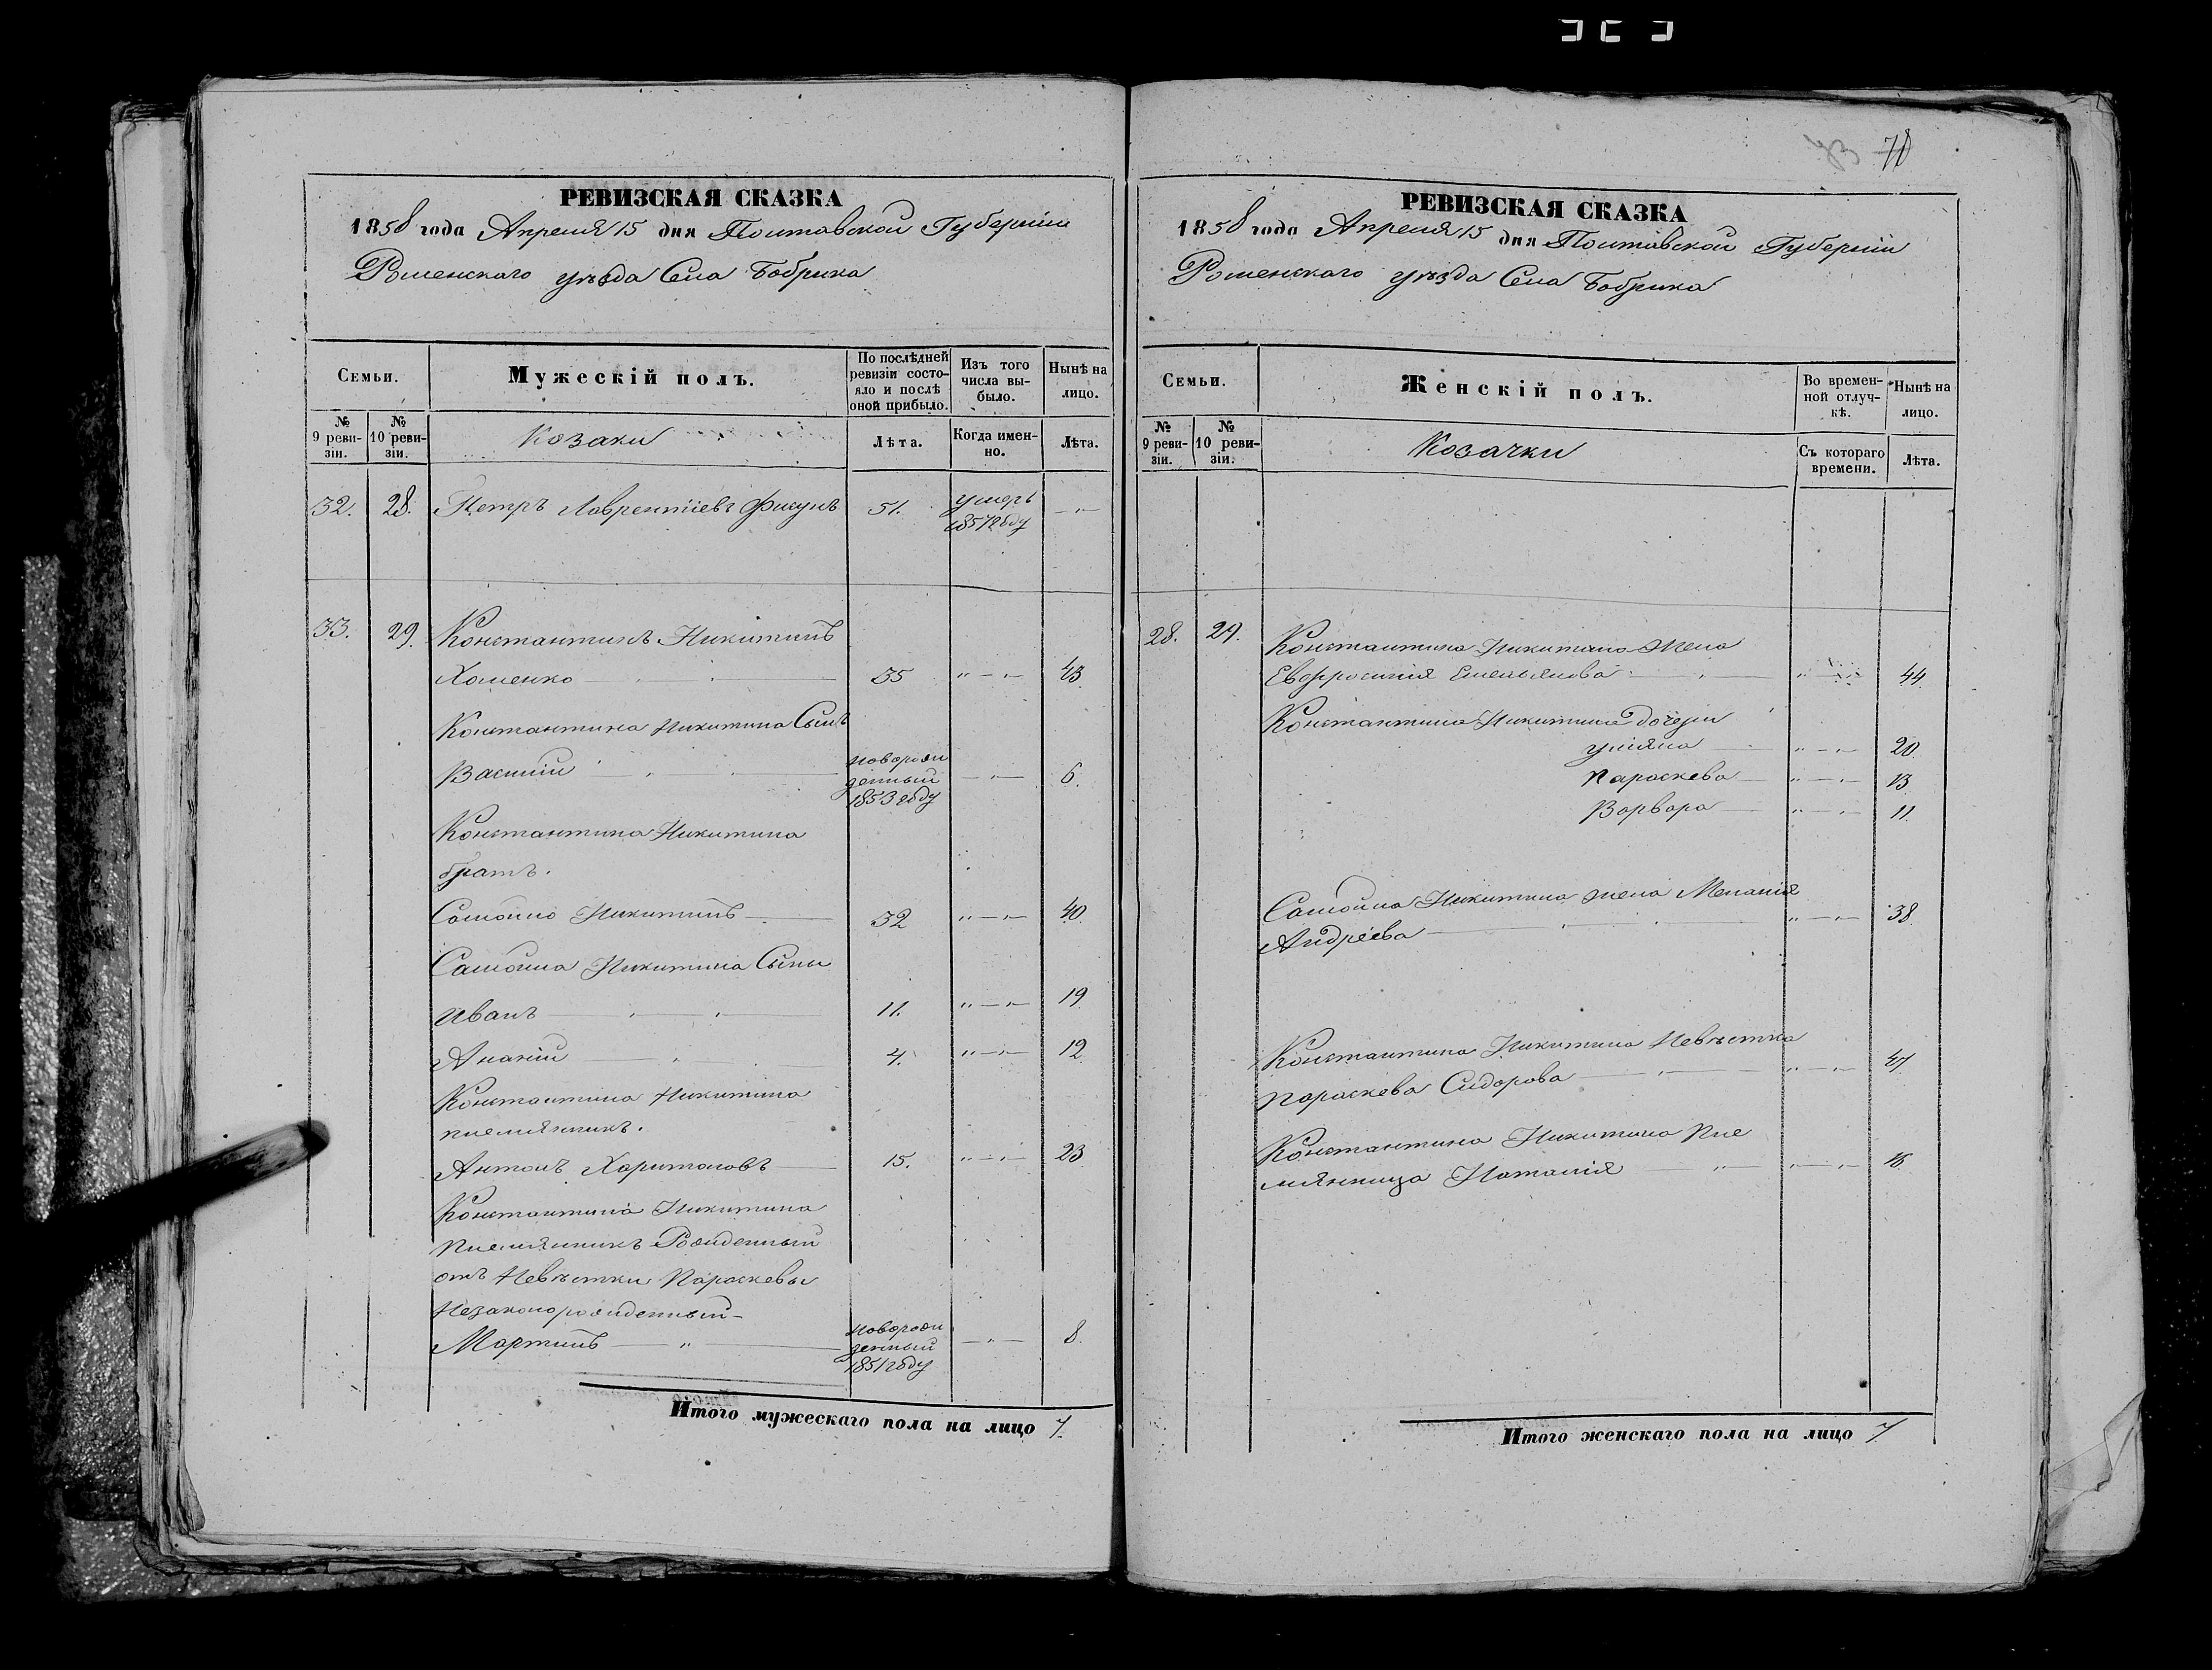 73 70
РЕВИЗСКАЯ СКАЗКА
1858 года Апреля 15 дня Полтавской Губерніи
Роменскаго уѣзда Села Бобрика
Семьи.
Мужескій полъ.
По послѣдней ревизіи состояло и послѣ оной прибыло.
Изъ того числа выбыло.
Нынѣ на лицо.
№ 9 ревизіи.
№ 10 ревизіи.
Козаки
Лѣта.
Когда именно.
Лѣта.
32. 28. Петръ Лаврентіевъ Фисунъ 51. умеръ 1857 году — " —
33. 29. Константинъ Никитинъ
Хоменко 35 " — " — 43
Константина Никитина Сынъ
Василій новорожденный 1853 году — " — 6.
Константина Никитина
братъ.
Самойло Никитинъ 32 " — " — 40
Самойла Никитина Сыны
Иванъ 11. " — " — 19
Ананій 4. " — " — 12
Константина Никитина
племянникъ.
Антонъ Харитоновъ 15. " — " — 23
Константина Никитина
племянникъ Рожденный
отъ Невѣстки Параскевы
Незаконорожденный
Мартинъ — " — новорожденный 1851 году — " — 8.
Итого мужескаго пола на лицо 7.
РЕВИЗСКАЯ СКАЗКА
1858 года Апреля 15 дня Полтавской Губерніи
Роменскаго уѣзда Села Бобрика
Семьи.
Женскій полъ.
Во временной отлучкѣ.
Нынѣ на лицо.
№ 9 ревизіи.
№ 10 ревизіи.
Козачки
Съ котораго времени.
Лѣта.
28. 29. Константина Никитина жена
Евфросинія Емельянова " — " — 44
Константина Никитина дочери
Уліяна " — " — 20
Параскева " — " — 13
Варвара " — " — 11
Самойла Никитина жена Меланія
Андреева " — " — 38
Константина Никитина Невѣстка
Параскева Сидорова " — " — 47
Константина Никитина Пле
мянница Наталія " — " — 16
Итого женскаго пола на лицо 7